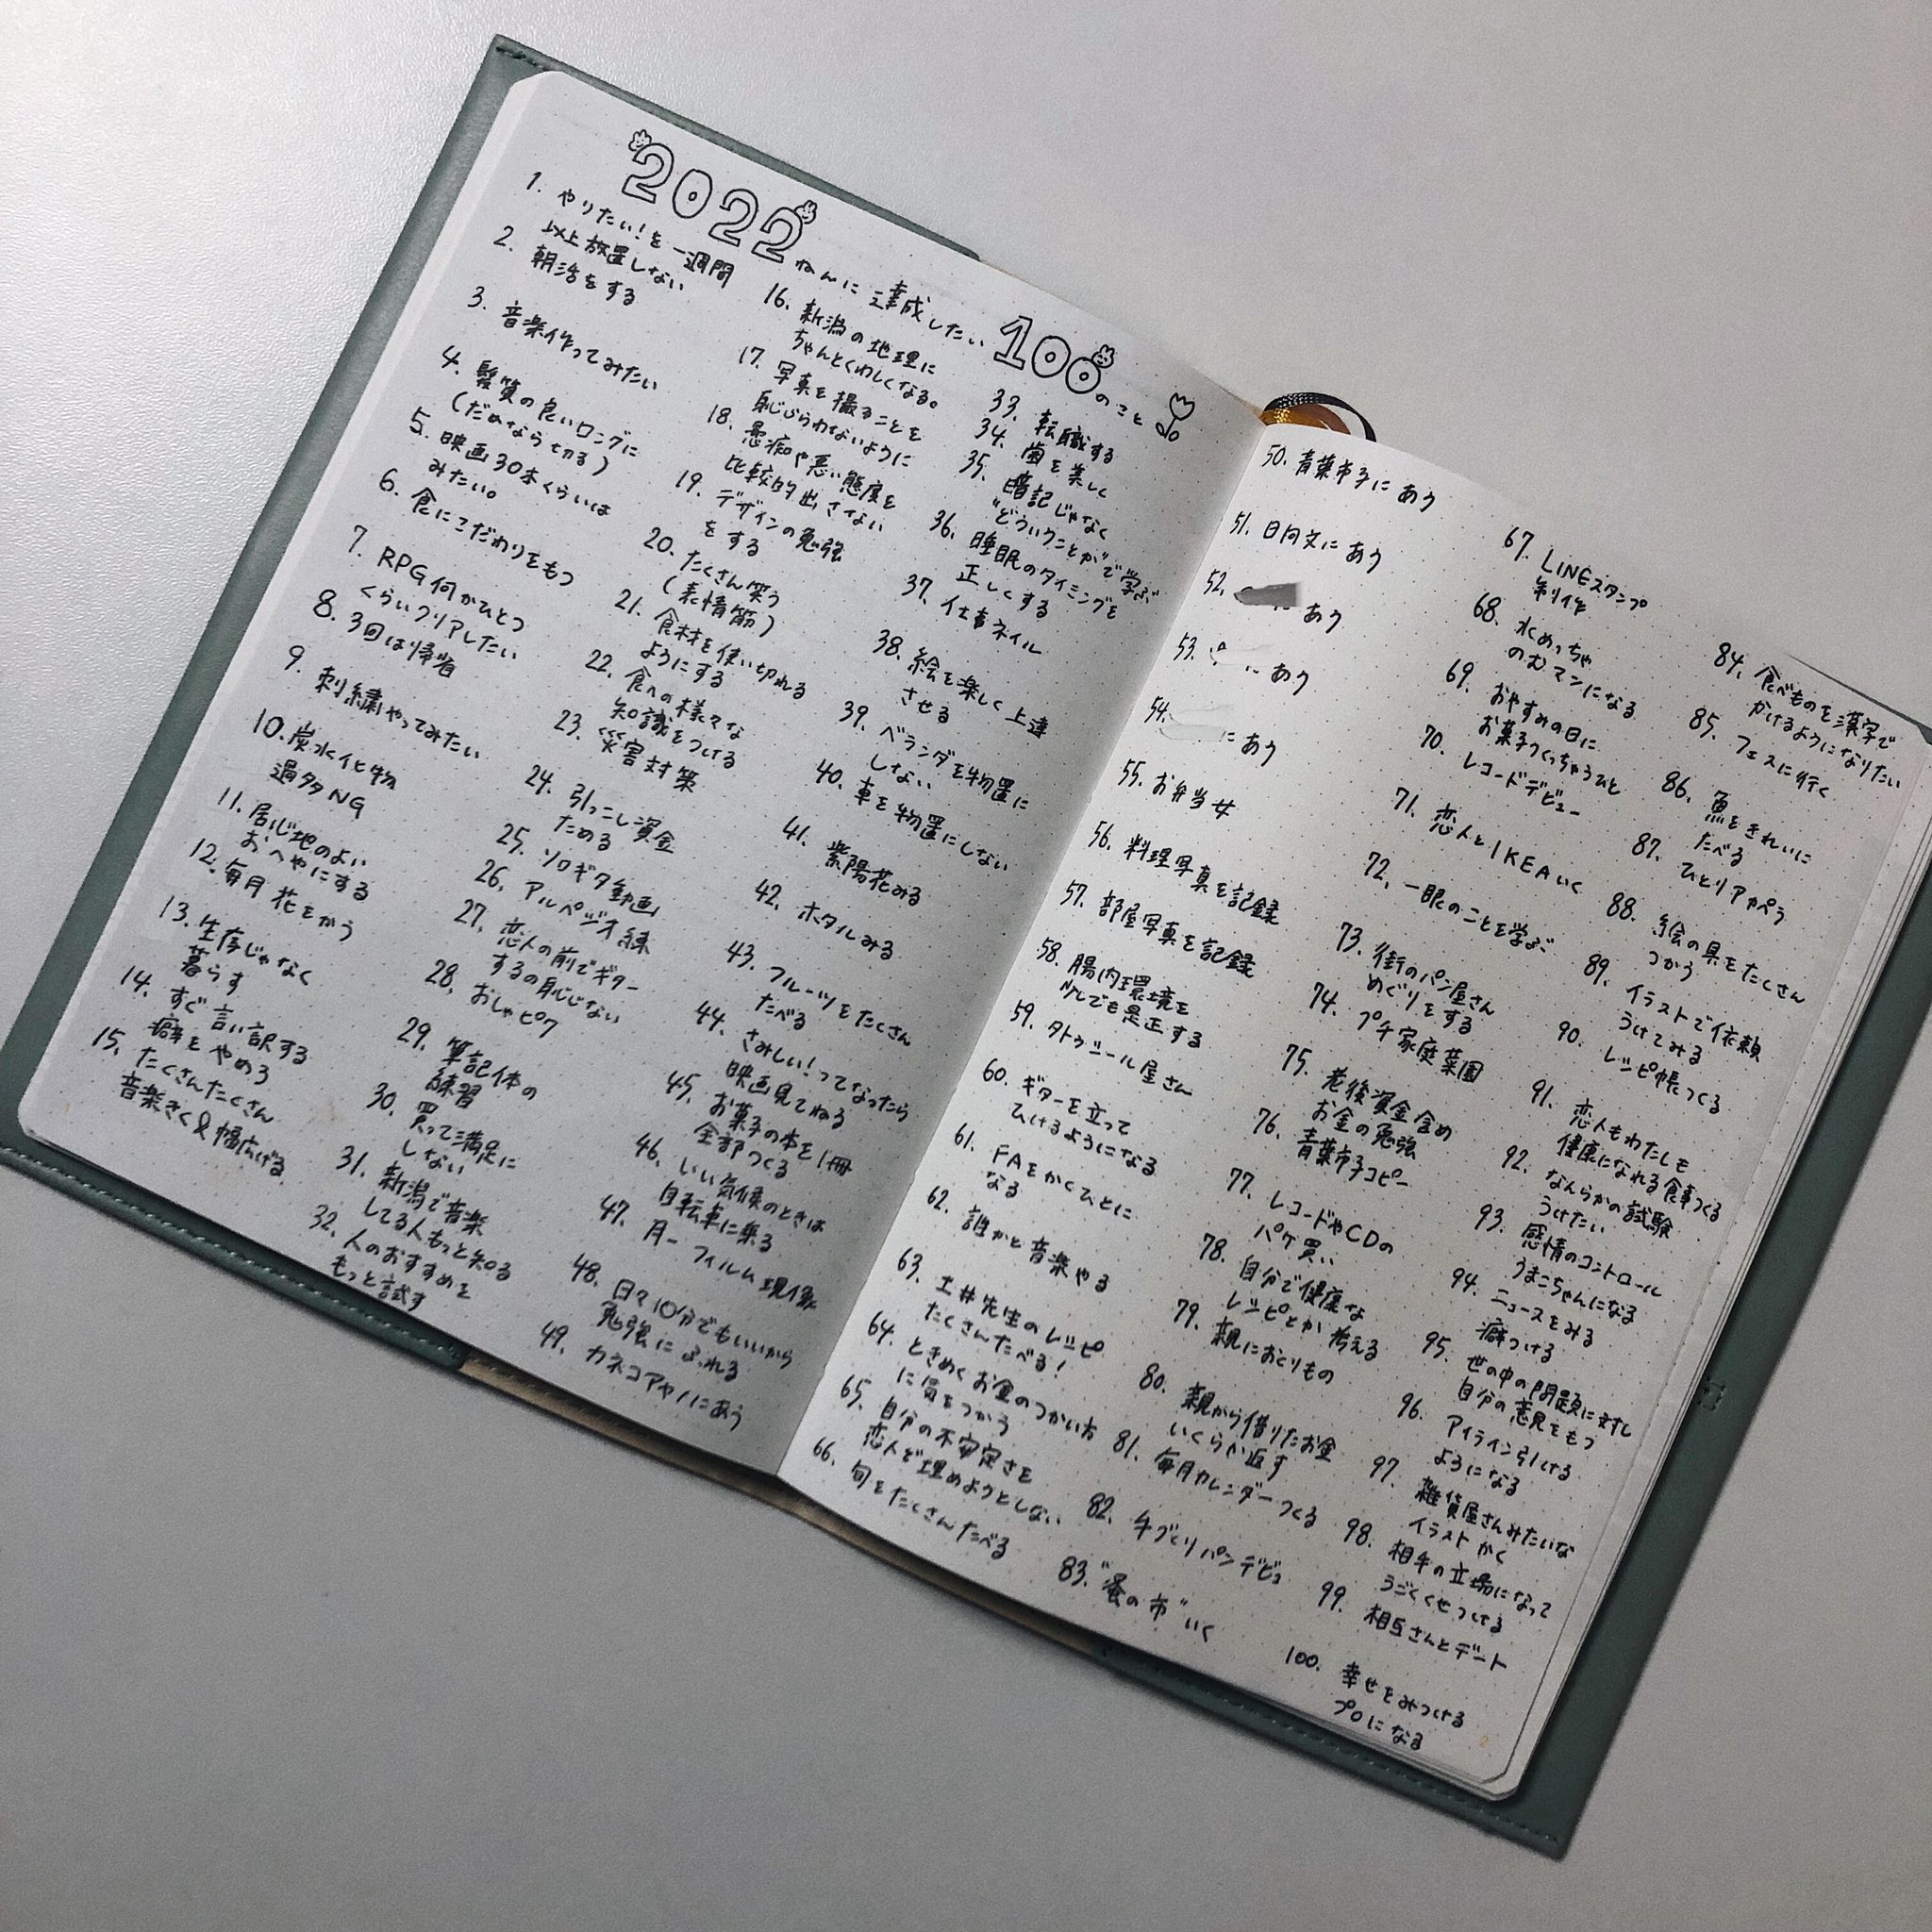 2022ねんに達成したい100のこと
1. やりたい!を一週間
以上放置しない
2. 朝活をする
3. 音楽作ってみたい
4. 髪質の良いロングに
(だめなら切る)
5. 映画30本くらいは
みたい。
6. 食にこだわりをもつ
7. RPG何かひとつ
くらいクリアしたい
8. 3回は帰省
9. 刺繍やってみたい
10. 炭水化物
過多NG
11. 居心地のよい
おへやにする
12. 毎月花をかう
13. 生存じゃなく
暮らす
14. すぐ言い訳する
癖をやめろ
15. たくさんたくさん
音楽きく&幅広げる
16. 新潟の地理に
ちゃんとくわしくなる。
17. 写真を撮ることを
恥じらわないように
18. 愚痴や悪い態度を
比較的出さない
19. デザインの勉強
をする
20. たくさん笑う
(表情筋)
21. 食材を使い切れる
ようにする
22. 食への様々な
知識をつける
23. 災害対策
24. 引っこし資金
ためる
25. ソロギタ動画
26. アルペジオ練
27. 恋人の前でギター
するの恥じない
28. おしゃピク
29. 筆記体の
練習
30. 買って満足に
しない
31. 新潟で音楽
してる人もっと知る
32. 人のおすすめを
もっと試す
33. 転職する
34. 歯を美しく
35. 暗記じゃなく
"どういうことか"で学ぶ
36. 睡眠のタイミングを
正しくする
37. 仕事ネイル
38. 絵を楽しく上達
させる
39. ベランダを物置に
しない
40. 車を物置にしない
41. 紫陽花みる
42. ホタルみる
43. フルーツをたくさん
たべる
44. さみしい!ってなったら
映画見てねる
45. お菓子の本を1冊
全部つくる
46. いい気候のときは
自転車に乗る
47. 月一フィルム現像
48. 日々10分でもいいから
勉強にふれる
49. カネコアヤノにあう
50. 青葉市子にあう
51. 日向文にあう
52. あう
53. あう
54. にあう
55. お弁当女
56. 料理写真を記録
57. 部屋写真を記録
58. 腸内環境を
少しでも是正する
59. タトゥシール屋さん
60. ギターを立って
ひけるようになる
61. FAをかくひとに
なる
62. 誰かと音楽やる
63. 土井先生のレシピ
たくさんたべる!
64. ときめくお金のつかい方
に気をつかう
65. 自分の不安定さを
恋人で埋めようとしない
66. 旬をたくさんたべる
67. LINEスタンプ
制作
68. 水めっちゃ
のむマンになる
69. おやすみの日に
お菓子つくっちゃうひと
70. レコードデビュー
71. 恋人とIKEAいく
72. 一眼のことを学ぶ
73. 街のパン屋さん
めぐりをする
74. プチ家庭菜園
75. 老後資金含め
お金の勉強
76. 青葉市子コピー
77. レコードやCDの
パケ買い
78. 自分で健康な
レシピとか考える
79. 親におくりもの
80. 親から借りたお金
いくらか返す
81. 毎月カレンダーつくる
82. 手づくりパンデビュ
83. "蚤の市"いく
84. 食べものを漢字で
かけるようになりたい
85. フェスに行く
86. 魚をきれいに
たべる
87. ひとりアカペラ
88. 絵の具をたくさん
つかう
89. イラストで依頼
うけてみる
90. レシピ帳つくる
91. 恋人もわたしも
健康になれる食事つくる
92. なんらかの試験
うけたい
93. 感情のコントロール
うまこちゃんになる
94. ニュースをみる
癖つける
95. 世の中の問題に対し
自分の意見をもつ
96. アイライン引ける
ようになる
97. 雑貨屋さんみたいな
イラストかく
98. 相手の立場になって
うごくくせつける
99. 相互さんとデート
100. 幸せをみつける
プロになる
2